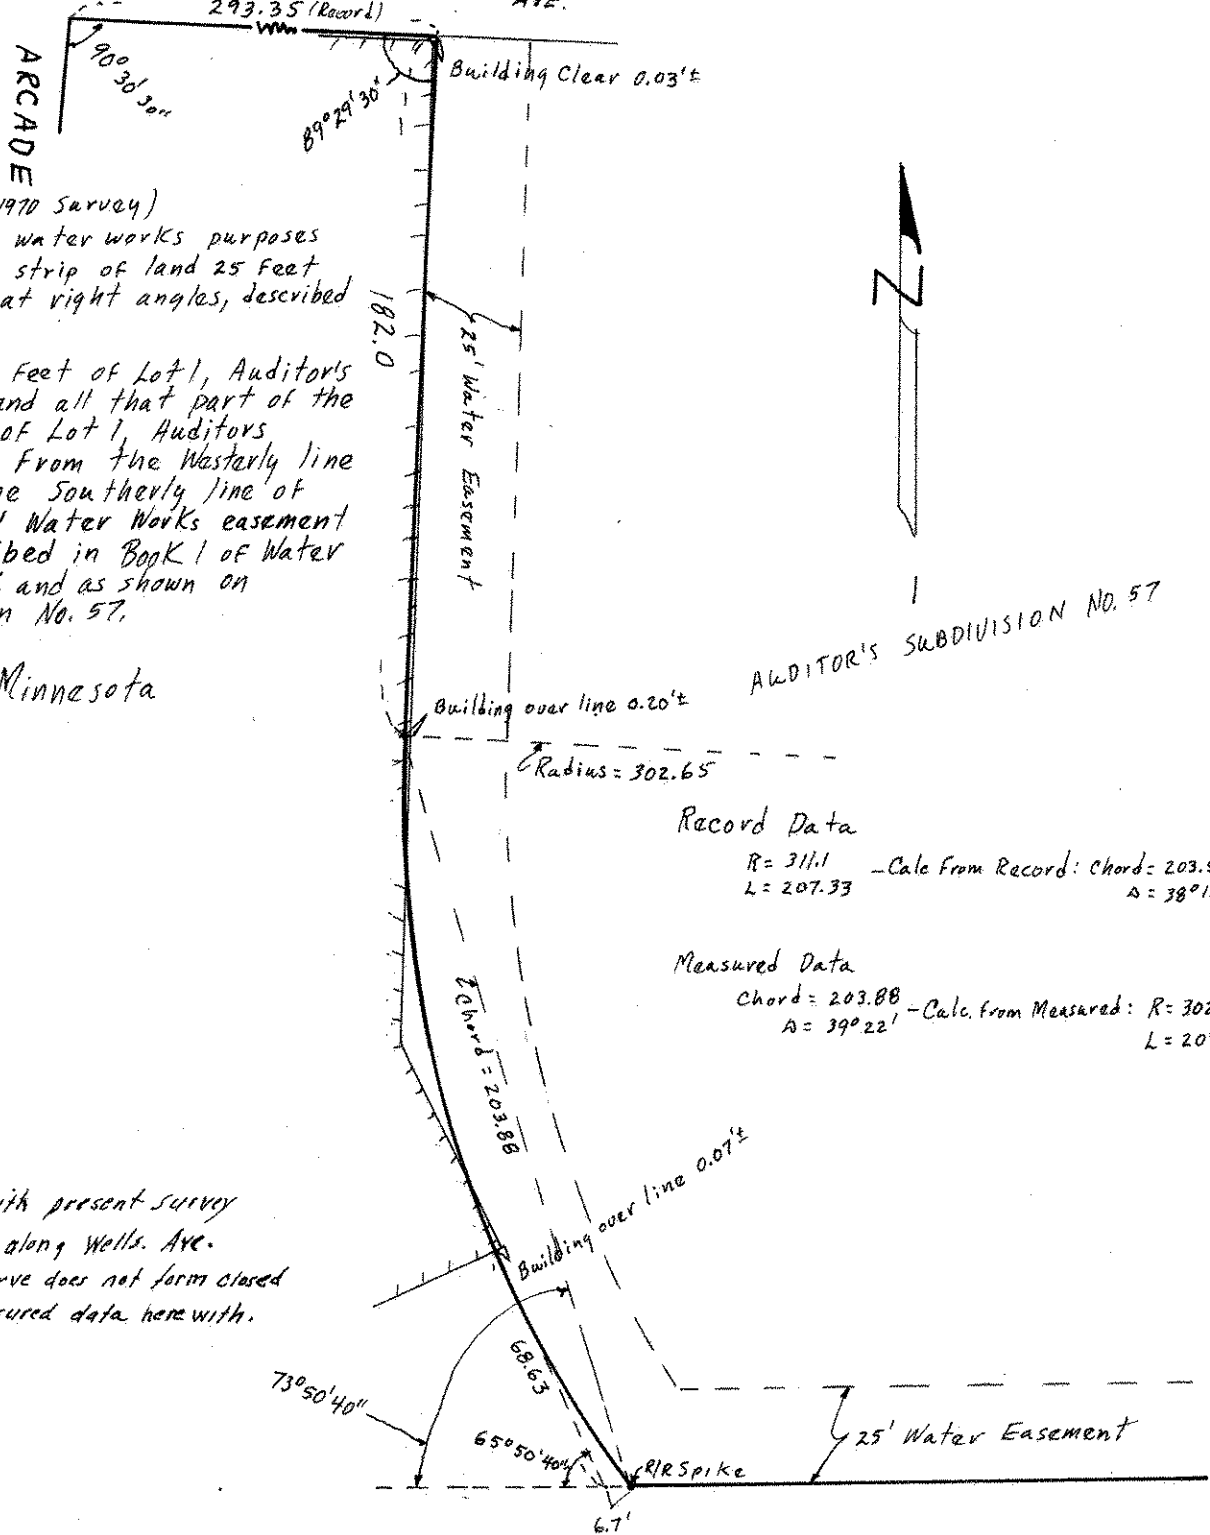 293.35 (Record)
AVE.
ARCADE
90° 30' 30"
89°29'30"
Building Clear 0.03'±
1970 Survey)
water works purposes
strip of land 25 Feet
at right angles, described
Feet of Lot 1, Auditor's
and all that part of the
of Lot 1, Auditors
From the Westerly line
Southerly line of
Water Works easement
in Book 1 of Water
and as shown on
No. 57.
Minnesota
182.0
25' Water Easement
N
AUDITOR'S SUBDIVISION NO. 57
Building over line 0.20'±
Radius = 302.65
Record Data
R = 311.1
L = 207.33
-Calc From Record: Chord = 203.
Δ = 38°1
Measured Data
Chord = 203.88
Δ = 39°22'
-Calc. from Measured: R = 302
L = 20
Chord = 203.88
Building over line 0.07'±
with present survey
along Wells. Ave.
does not form closed
data herewith.
68.63
73°50'40"
65°50'40"
R/R Spike
6.7'
25' Water Easement